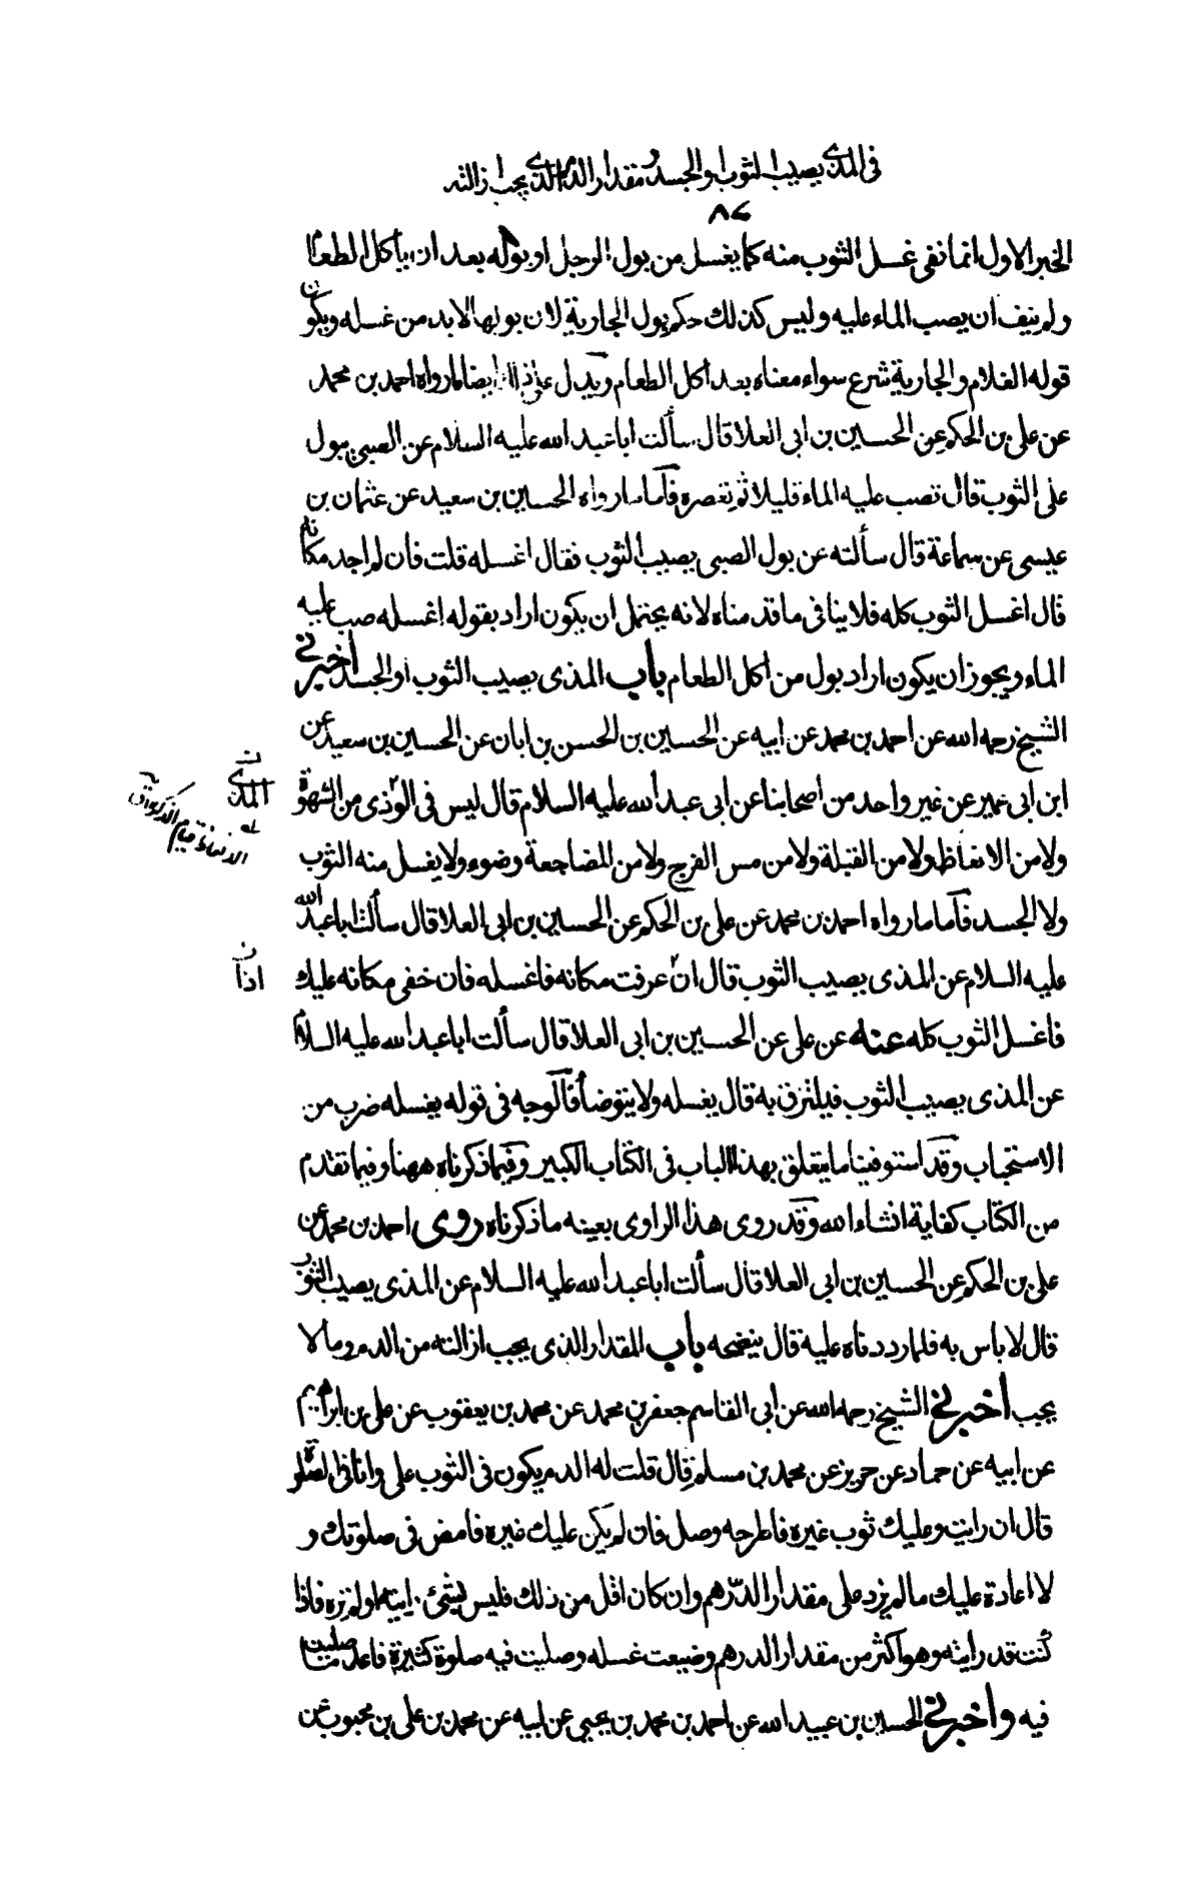 في المذي يصيب الثوب او الجسد ومقدار الدم الذي يجب ازالته
٨٤
الخبر الاول انما نفى غسل الثوب منه كما يغسل من بول الرجل او بوله بعد ان يأكل الطعام
ولم ينف ان يصب الماء عليه وليس كذلك حكم بول الجارية لان بولها لابد من غسله ويكون
قوله الغلام والجارية شرع سواء معناه بعد اكل الطعام ويدل على ذلك ايضا ما رواه احمد بن محمد
عن علي بن الحكم عن الحسين بن ابي العلا قال سألت ابا عبد الله عليه السلام عن الصبي يبول
على الثوب قال تصب عليه الماء قليلا ثم تعصره فأما ما رواه الحسين بن سعيد عن عثمان بن
عيسى عن سماعة قال سألته عن بول الصبي يصيب الثوب فقال اغسله قلت فان لم اجد مكانه
قال اغسل الثوب كله فلا ينافي ما قدمناه لانه يحتمل ان يكون اراد بقوله اغسله صب عليه
الماء ويجوز ان يكون اراد بول من اكل الطعام باب المذى يصيب الثوب او الجسد اخبرني
الشيخ رحمه الله عن احمد بن محمد عن ابيه عن الحسين بن الحسن بن ابان عن الحسين بن سعيد عن
ابن ابي عمير عن غير واحد من اصحابنا عن ابي عبد الله عليه السلام قال ليس في الوذى من الشهوة
ولا من الانعاظ ولا من القبلة ولا من مس الفرج ولا من المضاجعة وضوء ولا يغسل منه الثوب
ولا الجسد فأما ما رواه احمد بن محمد عن علي بن الحكم عن الحسين بن ابي العلا قال سألت ابا عبد الله
عليه السلام عن المذى يصيب الثوب قال ان عرفت مكانه فاغسله فان خفى مكانه عليك
فاغسل الثوب كله عنه عن علي عن الحسين بن ابي العلا قال سألت ابا عبد الله عليه السلام
عن المذى يصيب الثوب فيلتزق به قال يغسله ولا يتوضأ فالوجه في قوله يغسله ضرب من
الاستحباب وقد استوفينا ما يتعلق بهذا الباب في الكتاب الكبير وفيما ذكرناه ههنا وفيما تقدم
من الكتاب كفاية انشاء الله وقد روى هذا الراوى بعينه ما ذكرناه روى احمد بن محمد عن
علي بن الحكم عن الحسين بن ابي العلا قال سألت ابا عبد الله عليه السلام عن المذى يصيب الثوب
قال لا بأس به فلما رددناه عليه قال ينضحه باب المقدار الذى يجب ازالته من الدم وما لا
يجب اخبرني الشيخ رحمه الله عن ابي القاسم جعفر بن محمد عن محمد بن يعقوب عن علي بن ابراهيم
عن ابيه عن حماد عن حريز عن محمد بن مسلم قال قلت له الدم يكون في الثوب على وانا في الصلوة
قال ان رايت وعليك ثوب غيره فاطرحه وصل فان لم يكن عليك غيره فامض في صلوتك و
لا اعادة عليك ما لم يزد على مقدار الدرهم وان كان اقل من ذلك فليس بشئ رايته او لم تره فاذا
كنت قد رايته وهو اكثر من مقدار الدرهم وضيعت غسله وصليت فيه صلوة كثيرة فاعد ما صليت
فيه واخبرني الحسين بن عبيد الله عن احمد بن محمد بن يحيى عن ابيه عن محمد بن علي بن محبوب عن
المذى
الانعاظ قيام الذكر
اذا